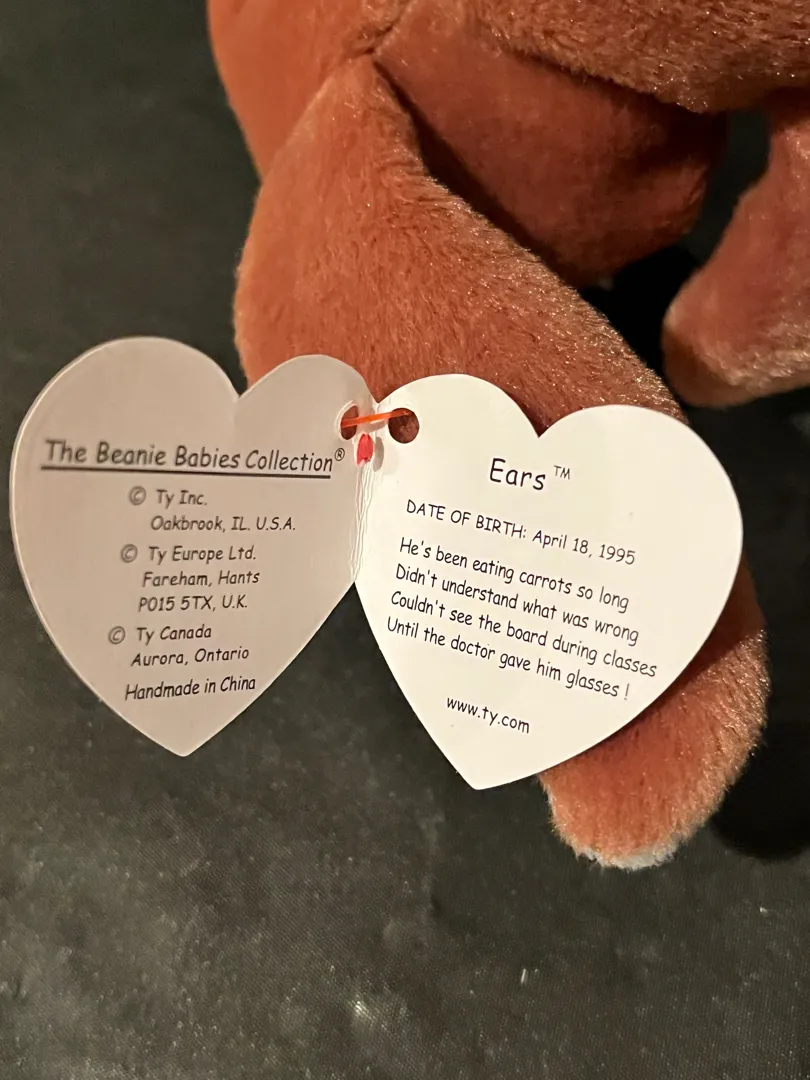 The Beanie Babies Collection®
© Ty Inc.
Oakbrook, IL. U.S.A.
© Ty Europe Ltd.
Fareham, Hants
P015 5TX, U.K.
© Ty Canada
Aurora, Ontario
Handmade in China
Ears™
DATE OF BIRTH: April 18, 1995
He's been eating carrots so long
Didn't understand what was wrong
Couldn't see the board during classes
Until the doctor gave him glasses !
www.ty.com